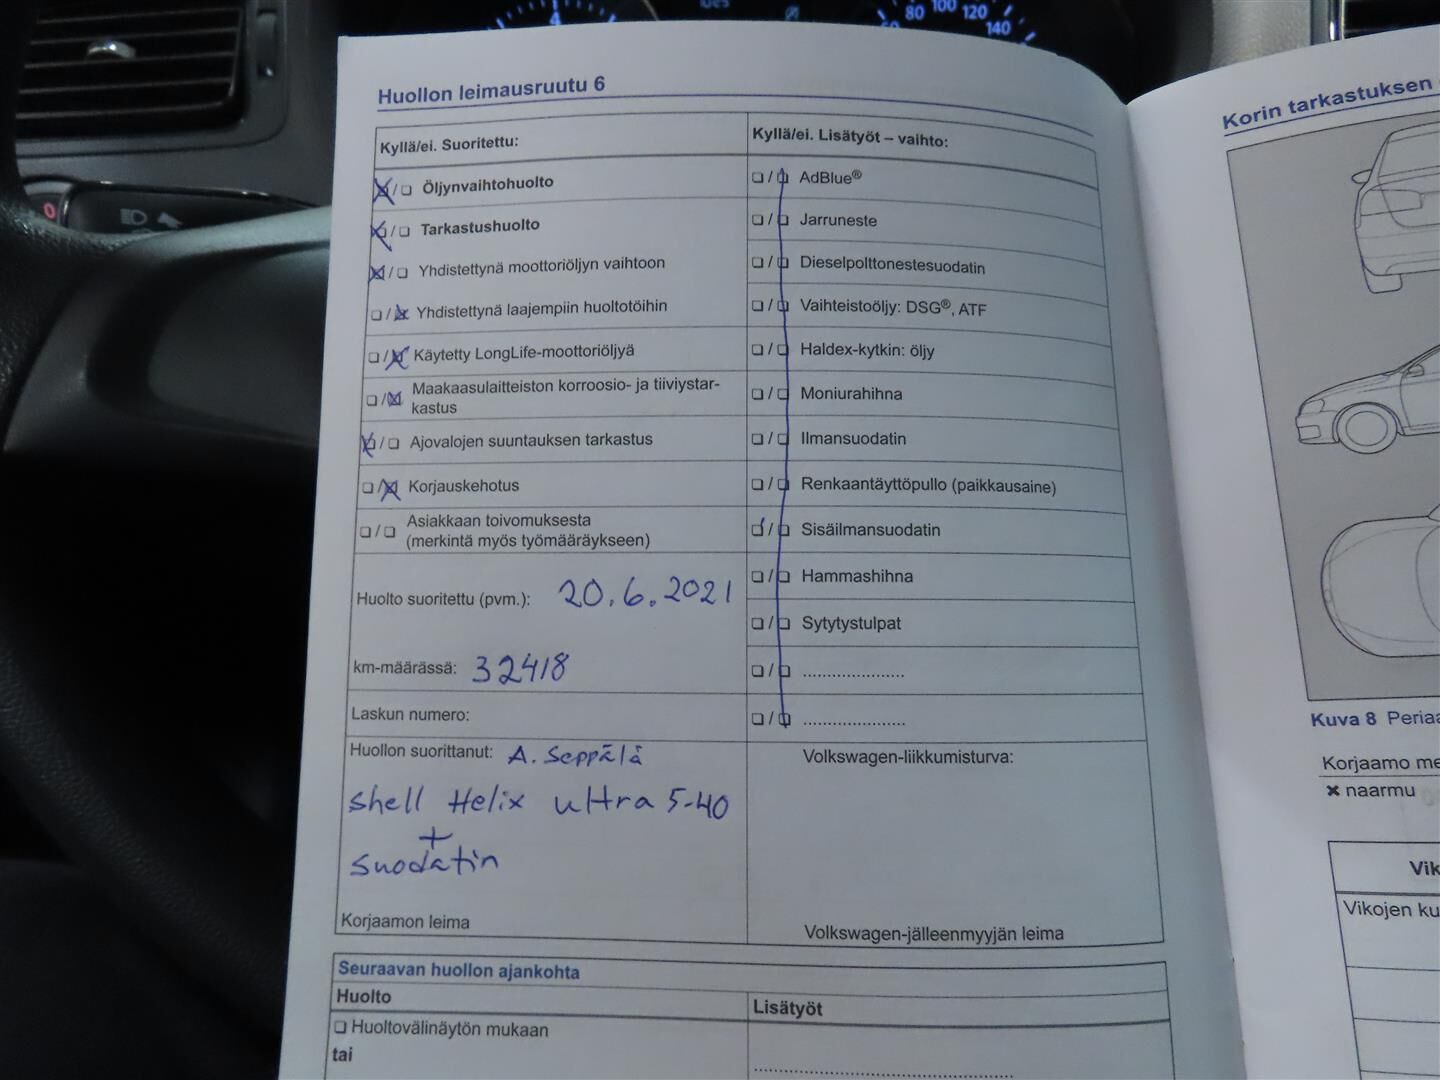 80 100 120
140
Huollon leimausruutu 6
Kyllä/ei. Suoritettu:
☒/☐ Öljynvaihtohuolto
☒/☐ Tarkastushuolto
☒/☐ Yhdistettynä moottoriöljyn vaihtoon
☐/☒ Yhdistettynä laajempiin huoltotöihin
☐/☒ Käytetty LongLife-moottoriöljyä
☐/☒ Maakaasulaitteiston korroosio- ja tiiviystar-
kastus
☒/☐ Ajovalojen suuntauksen tarkastus
☐/☒ Korjauskehotus
☐/☐ Asiakkaan toivomuksesta
(merkintä myös työmääräykseen)
Huolto suoritettu (pvm.): 20.6.2021
km-määrässä: 32418
Laskun numero:
Huollon suorittanut: A. Seppälä
Shell Helix Ultra 5-40
+
Suodatin
Korjaamon leima
Kyllä/ei. Lisätyöt – vaihto:
☐/☐ AdBlue®
☐/☐ Jarruneste
☐/☐ Dieselpolttonestesuodatin
☐/☐ Vaihteistoöljy: DSG®, ATF
☐/☐ Haldex-kytkin: öljy
☐/☐ Moniurahihna
☐/☐ Ilmansuodatin
☐/☐ Renkaantäyttöpullo (paikkausaine)
☐/☐ Sisäilmansuodatin
☐/☐ Hammashihna
☐/☐ Sytytystulpat
☐/☐ .....................
☐/☐ .....................
Volkswagen-liikkumisturva:
Volkswagen-jälleenmyyjän leima
Seuraavan huollon ajankohta
Huolto
☐ Huoltovälinäytön mukaan
tai
Lisätyöt
Korin tarkastuksen
Kuva 8 Peria
Korjaamo me
✖ naarmu
Vik
Vikojen ku